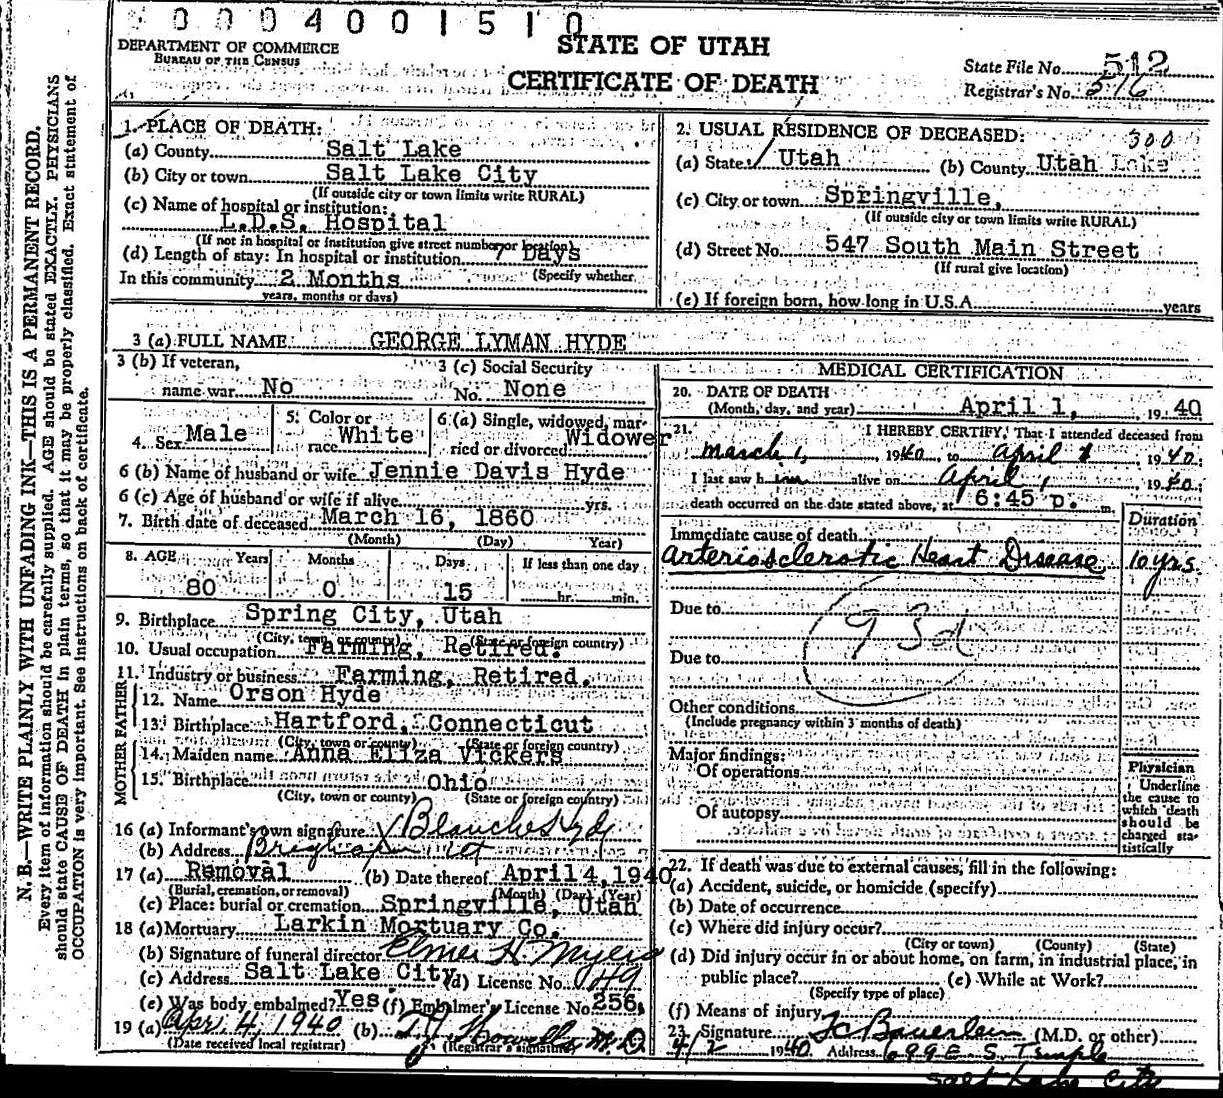 0004001510
DEPARTMENT OF COMMERCE
BUREAU OF THE CENSUS
STATE OF UTAH
CERTIFICATE OF DEATH
State File No. 512
Registrar's No. 516
N. B.—WRITE PLAINLY WITH UNFADING INK—THIS IS A PERMANENT RECORD.
Every item of information should be carefully supplied. AGE should be stated EXACTLY. PHYSICIANS
should state CAUSE OF DEATH in plain terms, so that it may be properly classified. Exact statement of
OCCUPATION is very important. See instructions on back of certificate.
1. PLACE OF DEATH:
(a) County Salt Lake
(b) City or town Salt Lake City
(If outside city or town limits write RURAL)
(c) Name of hospital or institution:
L.D.S. Hospital
(If not in hospital or institution give street number or location)
(d) Length of stay: In hospital or institution 7 Days
(Specify whether
In this community 2 Months
years, months or days)
2. USUAL RESIDENCE OF DECEASED: 300
(a) State Utah (b) County Utah
(c) City or town Springville,
(If outside city or town limits write RURAL)
(d) Street No. 547 South Main Street
(If rural give location)
(e) If foreign born, how long in U.S.A. years
3 (a) FULL NAME: GEORGE LYMAN HYDE
3 (b) If veteran,
name war No
3 (c) Social Security
No. None
4. Sex Male
5. Color or
race White
6 (a) Single, widowed, mar-
ried or divorced Widower
6 (b) Name of husband or wife Jennie Davis Hyde
6 (c) Age of husband or wife if alive yrs.
7. Birth date of deceased March 16, 1860
(Month) (Day) Year)
8. AGE Years Months Days If less than one day
80 0 15 hr. min.
9. Birthplace Spring City, Utah
(City, town or county) (State or foreign country)
10. Usual occupation Farming, Retired.
11. Industry or business Farming, Retired.
FATHER
12. Name Orson Hyde
13. Birthplace Hartford, Connecticut
(City, town or county) (State or foreign country)
MOTHER
14. Maiden name Anna Eliza Vickers
15. Birthplace Ohio
(City, town or county) (State or foreign country)
16 (a) Informant's own signature Blanche Hyde
(b) Address
17 (a) Removal (b) Date thereof April 4, 1940
(Burial, cremation, or removal) (Month) (Day) (Year)
(c) Place: burial or cremation Springville, Utah
18 (a) Mortuary Larkin Mortuary Co.
(b) Signature of funeral director Elmer H. Myers
(c) Address Salt Lake City (d) License No. 149
(e) Was body embalmed? Yes. (f) Embalmer's License No. 256,
19 (a) Apr. 4, 1940 (b) Howells M.D.
(Date received local registrar) (Registrar's signature)
MEDICAL CERTIFICATION
20. DATE OF DEATH
(Month, day, and year) April 1, 1940
21. I HEREBY CERTIFY, That I attended deceased from
March 1, 1940, to April 1 1940;
I last saw him alive on April 1 1940;
death occurred on the date stated above, at 6:45 p. m.
Duration
Immediate cause of death
Arteriosclerotic Heart Disease 10 yrs.
Due to
93d
Due to
Other conditions
(Include pregnancy within 3 months of death)
Major findings:
Of operations
Of autopsy
Physician
Underline
the cause to
which death
should be
charged sta-
tistically
22. If death was due to external causes, fill in the following:
(a) Accident, suicide, or homicide (specify)
(b) Date of occurrence
(c) Where did injury occur?
(City or town) (County) (State)
(d) Did injury occur in or about home, on farm, in industrial place, in
public place? (e) While at Work?
(Specify type of place)
(f) Means of injury
23. Signature Bauerlein (M.D. or other)
4/2 1940 Address 699 E. S. Temple
Salt Lake City